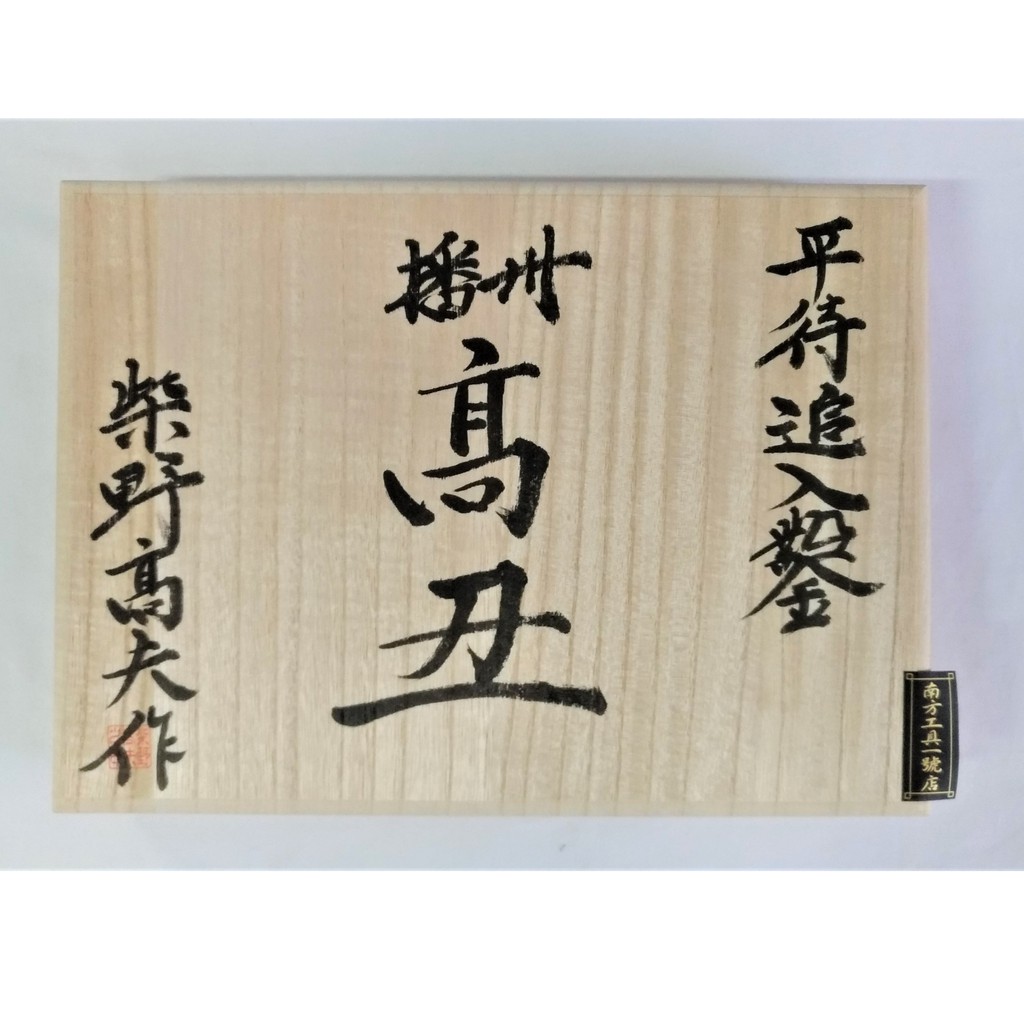 平待追入鑿
播州
髙丑
柴野髙夫作
南方工具一號店